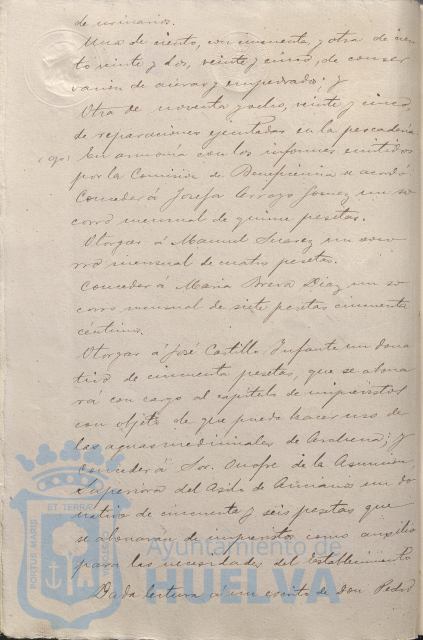 de urinarios.
Una de ciento, con cincuenta, y otra de cien
to veinte y dos, veinte y cinco, de conser
vacion de aceras y empedrados; y
Otra de noventa y ocho, veinte y cinco,
de reparaciones ejecutadas en la pescaderia
(9º) En armonía con los informes emitidos
por la Comision de Beneficencia se acordó
Conceder á Josefa Arroyo Gomez un so
corro mensual de quince pesetas.
Otorgar á Manuel Suarez un soco
rro mensual de cuatro pesetas.
Conceder á Maria Breva Diaz un so
corro mensual de siete pesetas cincuenta
céntimos.
Otorgar á José Castilla Infante un dona
tivo de cincuenta pesetas, que se abona
rá con cargo al capítulo de imprevistos
con objeto de que pueda hacer uso de
las aguas medicinales de Arahena; y
Conceder á Sor. Onofre de la Asuncion,
Superiora del Asilo de Ancianos un do
nativo de cincuenta y seis pesetas que
se abonaran de imprevistos como auxilio
para las necesidades del establecimiento
Dada lectura á un escrito de don Pedro
PORTUS MARIS ET TERRAE CUSTODIA
Ayuntamiento de
HUELVA